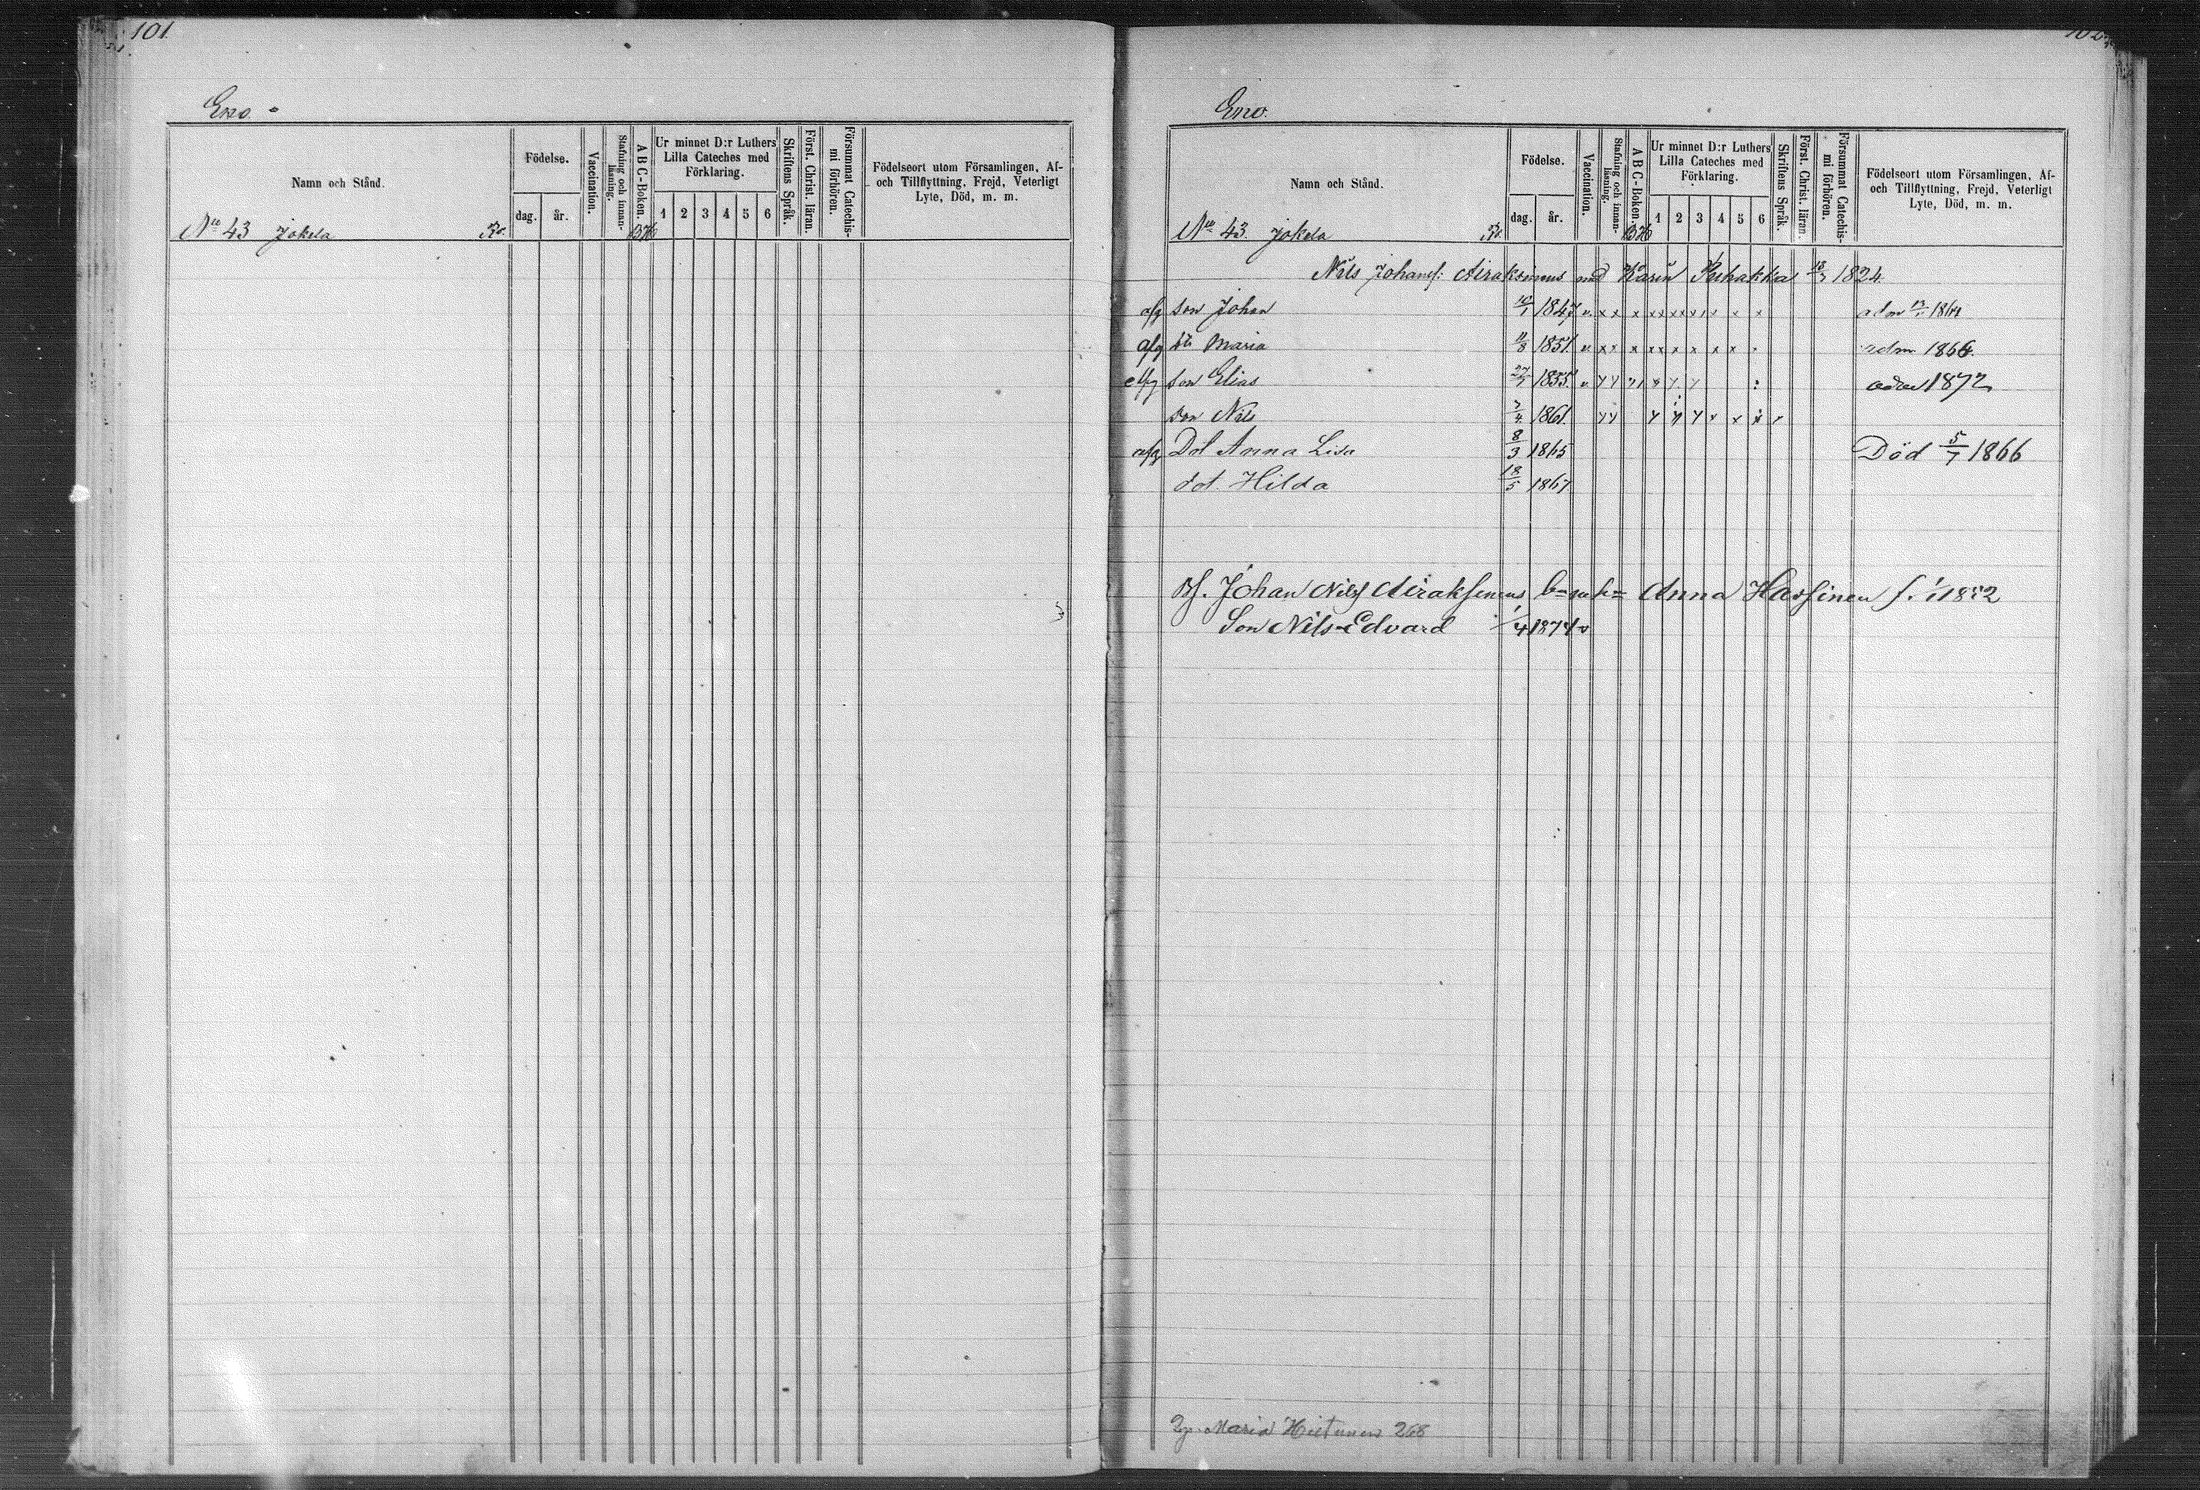 101
Eno.
Namn och Stånd.
Födelse.
dag.
år.
Vaccination.
Stafning och innan-
läsning.
A B C-Boken.
Ur minnet D:r Luthers
Lilla Cateches med
Förklaring.
1 2 3 4 5 6
Skriftens Språk.
Först. Christ. läran.
Försummat Catechis-
mi förhören.
Födelseort utom Församlingen, Af-
och Tillflyttning, Frejd, Veterligt
Lyte, Död, m. m.
No 43 Jokela
Eno.
Namn och Stånd.
Födelse.
dag.
år.
Vaccination.
Stafning och innan-
läsning.
A B C-Boken.
Ur minnet D:r Luthers
Lilla Cateches med
Förklaring.
1 2 3 4 5 6
Skriftens Språk.
Först. Christ. läran.
Försummat Catechis-
mi förhören.
Födelseort utom Församlingen, Af-
och Tillflyttning, Frejd, Veterligt
Lyte, Död, m. m.
No 43. Jokela
Nils Johans. Airaksinens Karin 1824
afg son Johan 10/1 1847 v x x x x x x x x x x x adm 1864
afg Maria 11/8 1851 v x x x x x x x x x adm 1866.
afg son Elias 27/7 1855 1872
son Nils 7/4 1861
afg Dot Anna Lisa 8/3 1865 Död 5/7 1866
dot Hilda 18/5 1867
Johan Nilss Airaksinens Anna Hassinen f. 1852
Son Nils Edvard 1/4 1874 v
Maria Hietunen 268